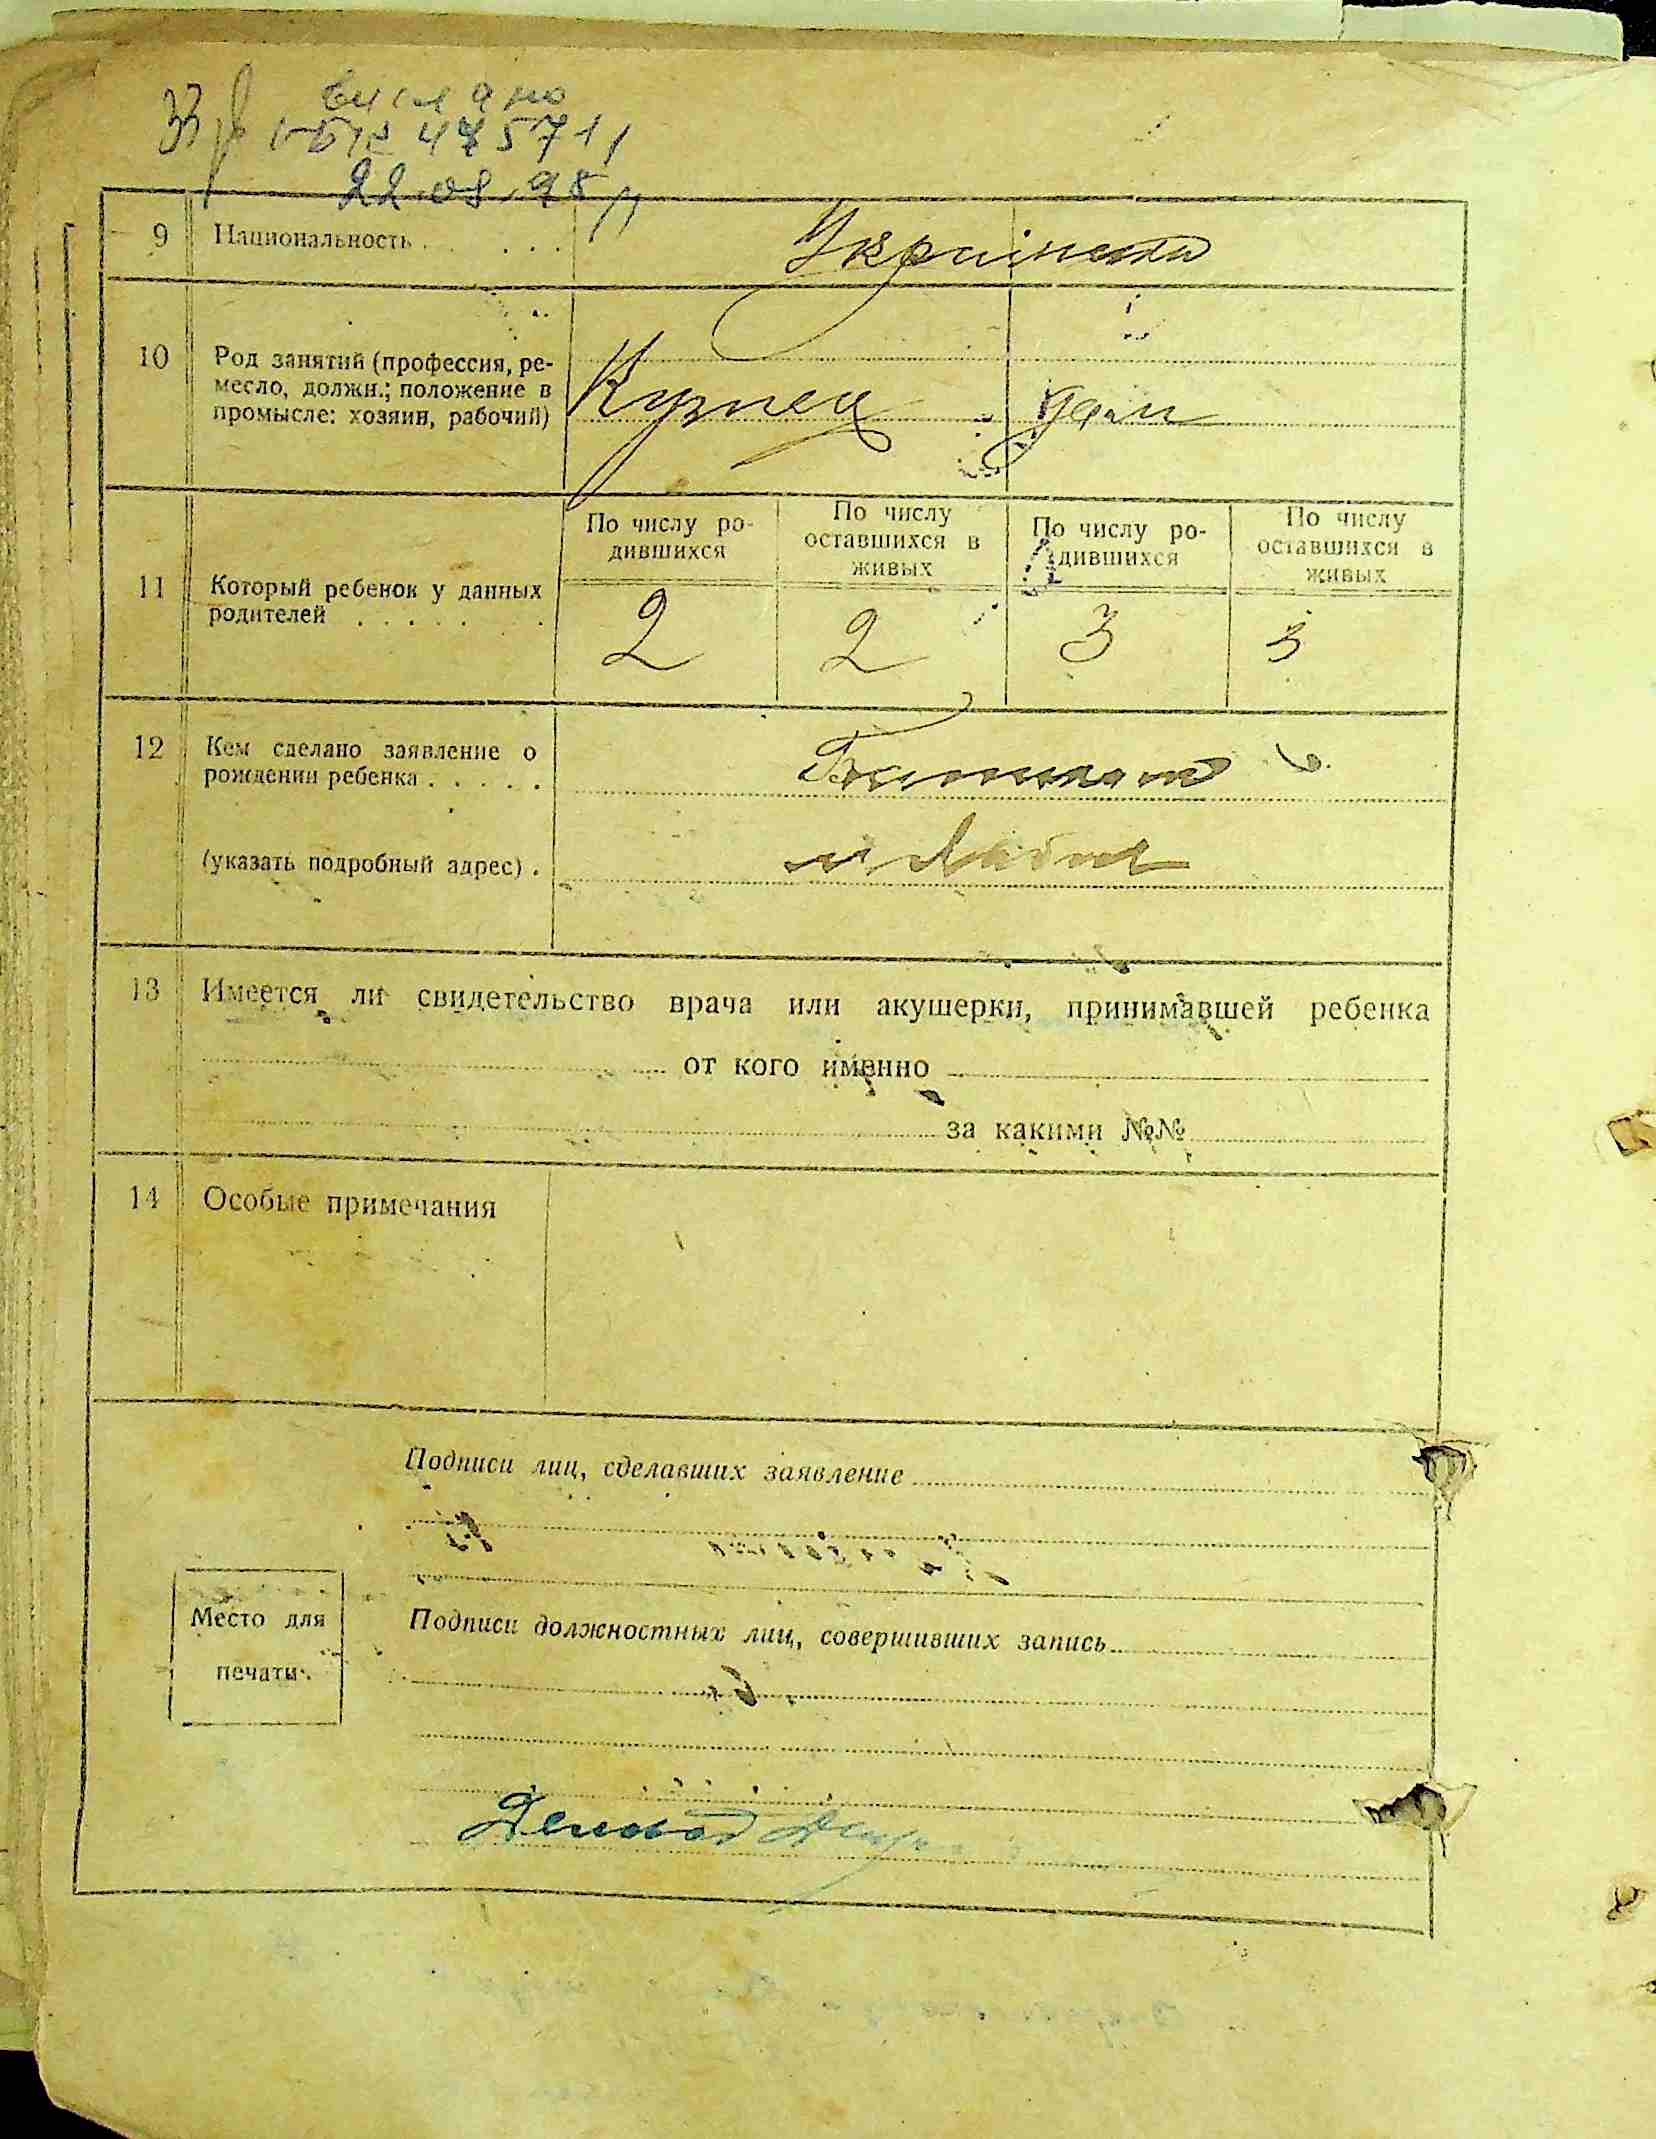 вислано
475711
22.08.98
9 Национальность . . . . . .
Українська
10 Род занятий (профессия, ре-
месло, должн.; положение в
промысле: хозяин, рабочий)
Кузнец
дом
По числу ро-
дившихся
По числу
оставшихся в
живых
По числу ро-
дившихся
По числу
оставшихся в
живых
11 Который ребенок у данных
родителей . . . . . .
2 2 3 3
12 Кем сделано заявление о
рождении ребенка . . . . .
(указать подробный адрес) .
13 Имеется ли свидетельство врача или акушерки, принимавшей ребенка
от кого именно
за какими №№
14 Особые примечания
Подписи лиц, сделавших заявление
Место для
печати.
Подписи должностных лиц, совершивших запись